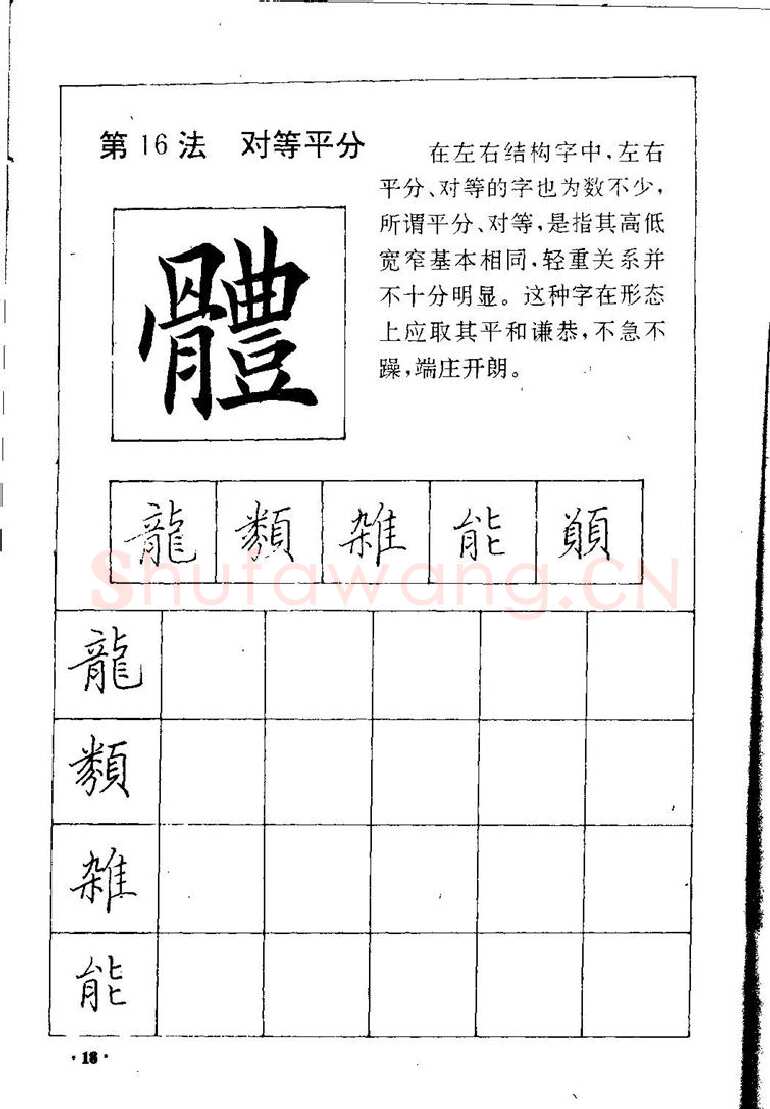 第16法 对等平分
在左右结构字中，左右
平分、对等的字也为数不少，
所谓平分、对等，是指其高低
宽窄基本相同，轻重关系并
不十分明显。这种字在形态
上应取其平和谦恭，不急不
躁，端庄开朗。
體
龍 類 雑 能 順
Shufawang.CN
龍
類
雑
能
·18·